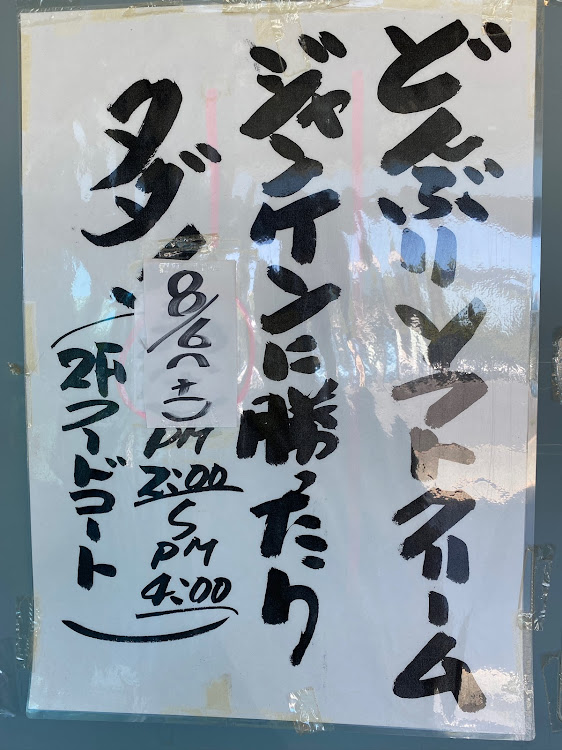 どんぶりソフトクリーム
ジャンケンに勝ったら
タダ
8/6(土)
PM
2:00
〜
PM
4:00
2Fフードコート